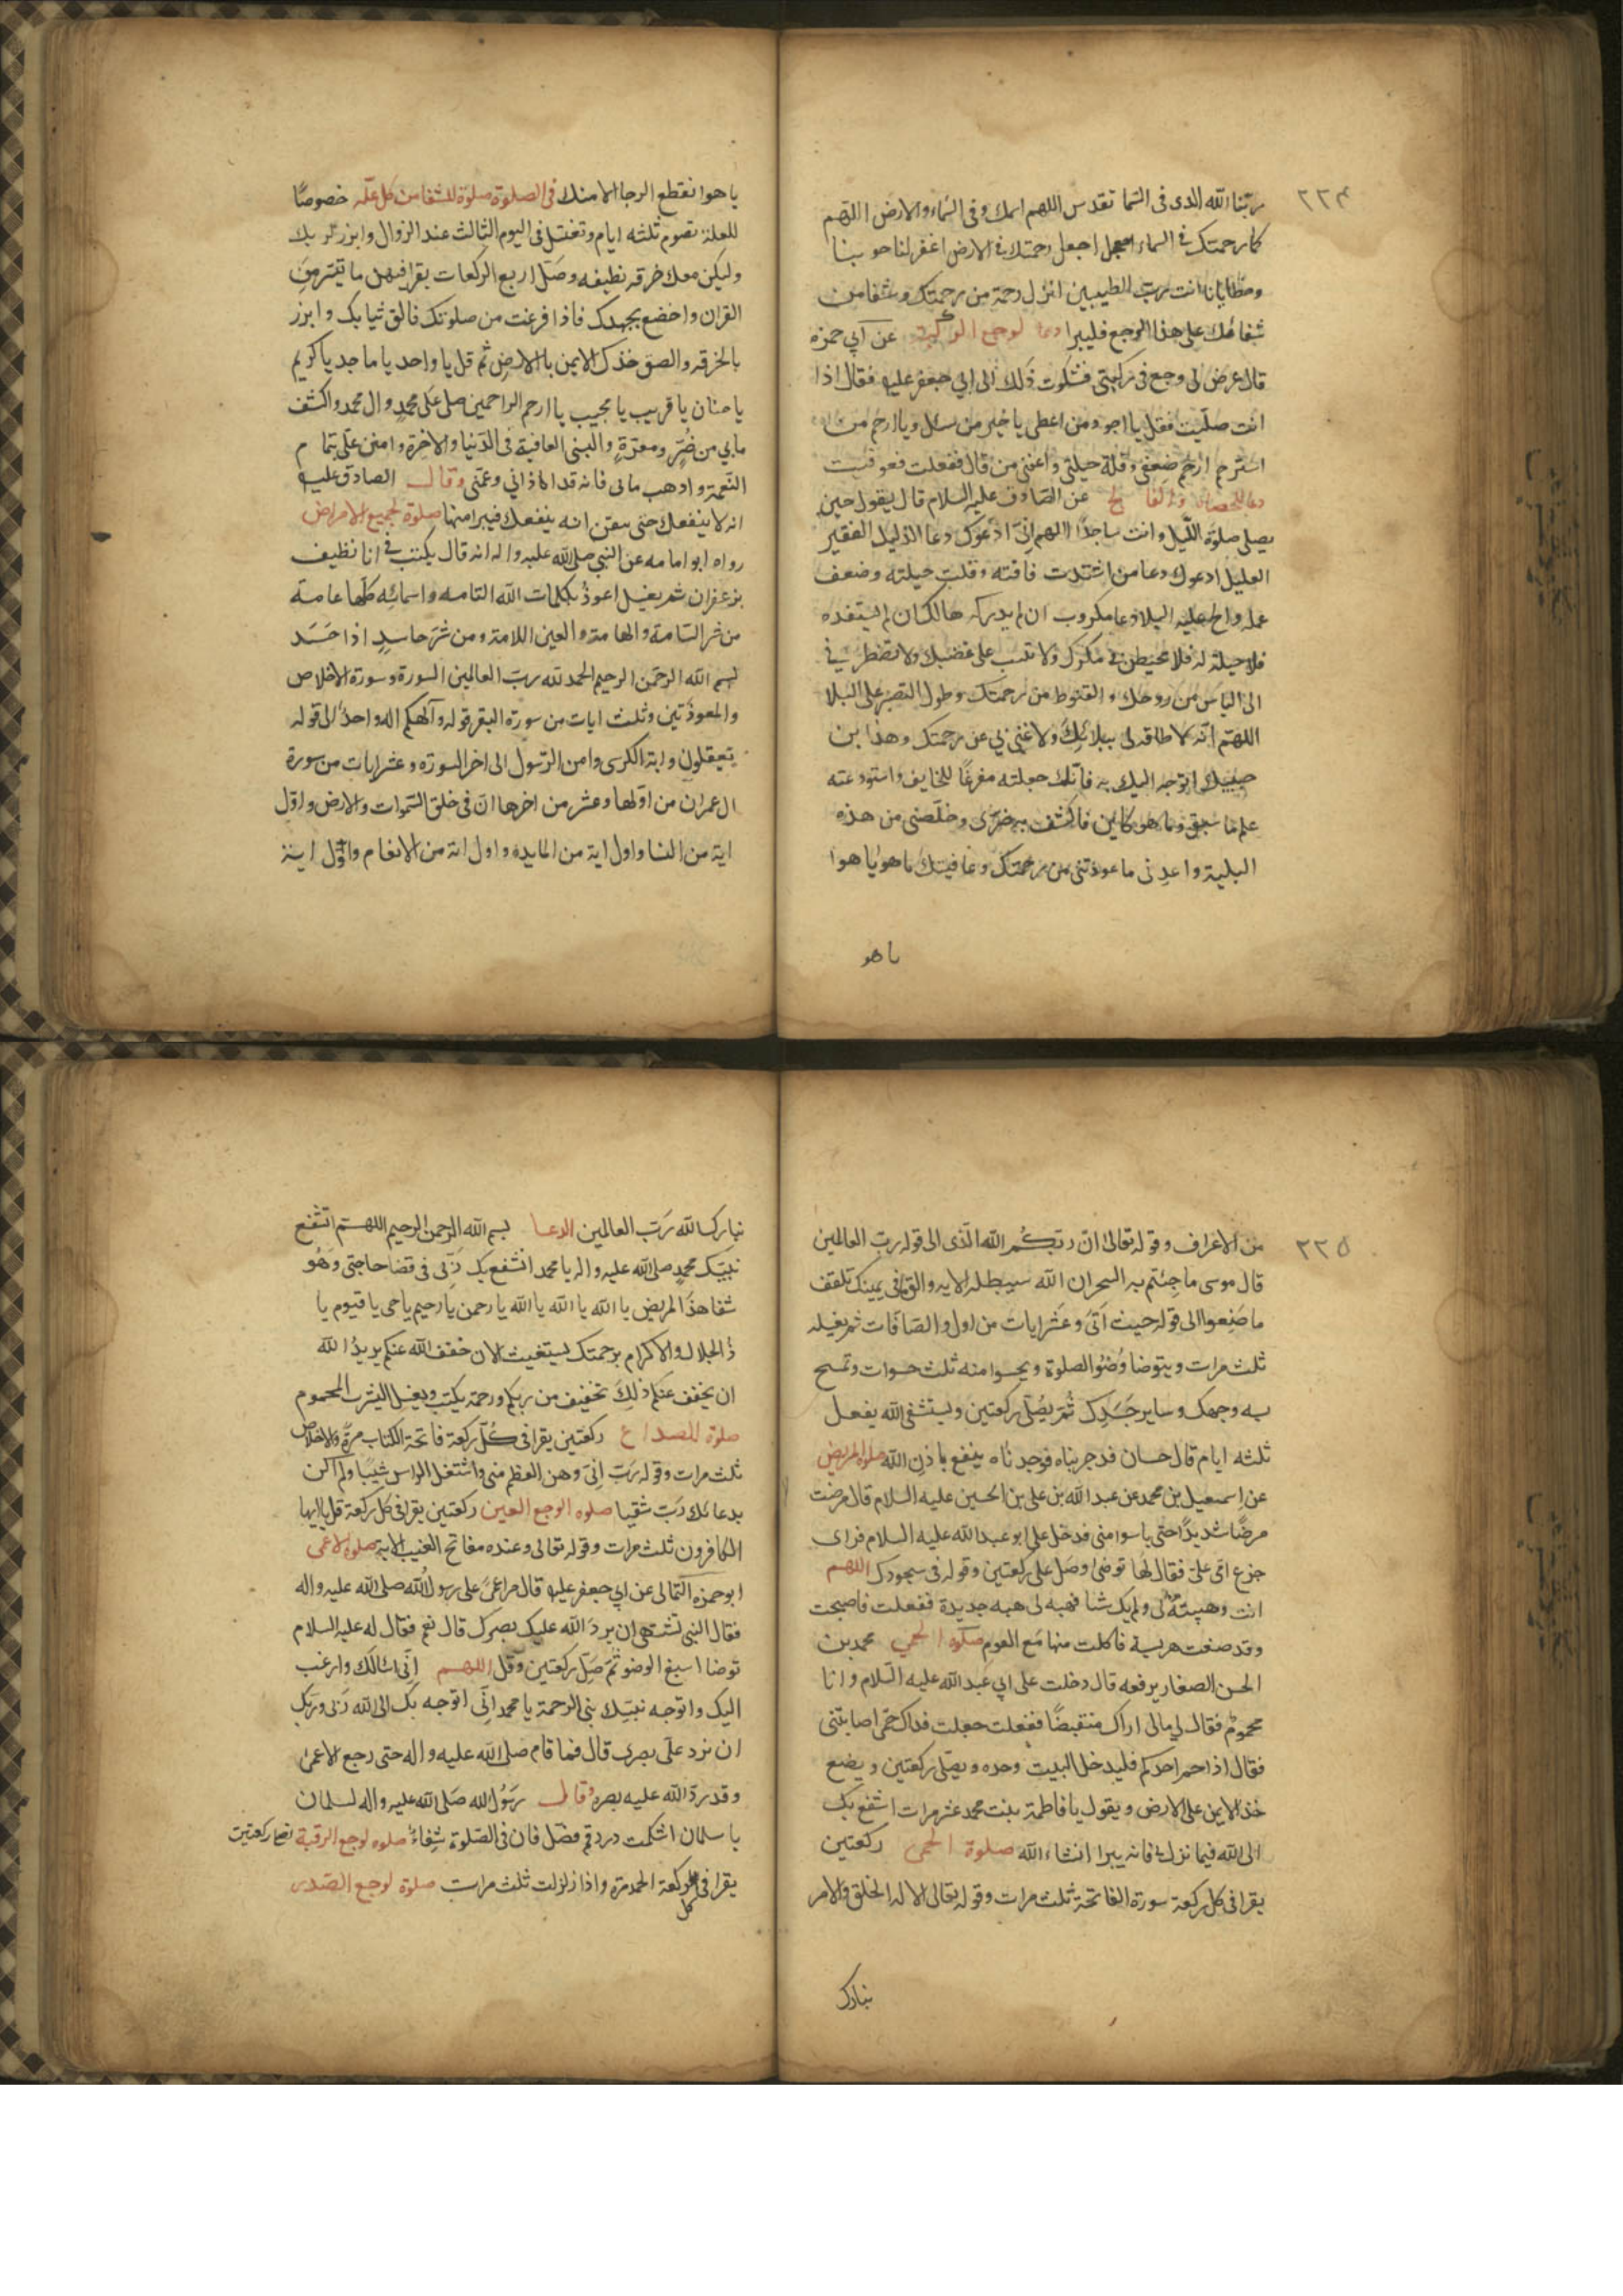 ٢٢٤
ربنا الله الذى فى السما تقدس اللهم اسمك وفى السماء والارض اللهم
كما رحمتك فى السماء اجعل رحمتك فى الارض اغفر لنا حوبنا
وخطايانا انت رب الطيبين انزل رحمة من رحمتك وشفا من
شفائك على هذا الوجع فليبرا دعا لوجع الركبة عن ابي حمزه
قال عرض لى وجع فى ركبتى فشكوت ذلك الى ابي جعفر عليه فقال اذا
انت صليت فقل يا اجود من اعطى يا خير من سئل ويا ارحم من
استرحم ارحم ضعفى وقلة حيلتى واعفنى من قال ففعلت فعوفيت
عن الصادق عليه السلام قال يقول حين
يصلى صلوة الليل وانت ساجدا اللهم انى ادعوك دعا الذليل الفقير
العليل ادعوك دعا من اشتدت فاقته وقلت حيلته وضعف
عمله والح عليه البلا دعا مكروب ان لم يدركه هالك ان لم يستنقذه
فلا حيلة له فلا تحيطن بى مكرك ولا تثبت على غضبك ولا تضطرني
الى الياس من روحك والقنوط من رحمتك وطول التصبر على البلا
اللهم انه لا طاقه لى ببلائك ولا غنى بي عن رحمتك وهذا بن
حبيبك اتوجه اليك به فانك جعلته مفزعا للخايف واستودعته
علم ما سبق وما هو كاين فاكشف به ضرى وخلصنى من هذه
البلية واعدنى ما عودتنى من رحمتك وعافيتك يا هو يا هو
يا هو
يا هو انقطع الرجا الا منك فى الصلوة صلوة للشفا من كل علّه خصوصًا
للعلة تصوم ثلثه ايام وتغتسل فى اليوم الثالث عند الزوال وابرز لربك
وليكن معك خرقه نظيفه وصل اربع الركعات يقرا فيهن ما تيسر من
القران واخضع بجهدك فاذا فرغت من صلوتك فالق ثيابك وابرز
بالخرقه والصق خدك الايمن بالارض ثم قل يا واحد يا ماجد يا كريم
يا حنان يا قريب يا مجيب يا ارحم الراحمين صلى على محمد وال محمد واكشف
مابي من ضُرّ ومعرّة والبسنى العافية فى الدنيا والاخرة وامنن علّى بتمام
النعمة واذهب مابى فانه قد اذانى وغمنى وقال الصادق عليه
انه لا ينفعك حتى تيقن انه ينفعك فيبرا منها صلوة لجميع الامراض
رواه ابو امامه عن النبي صلى الله عليه واله انه قال يكتب فى انا نظيف
بزعفران ثم يغسل اعوذ بكلمات الله التامه واسمائه كلها عامة
من شر السامة والهامة والعين اللامة ومن شر حاسد اذا حَسَد
بسم الله الرحمن الرحيم الحمد لله رب العالمين السورة وسورة الاخلاص
والمعوذتين وثلث ايات من سورة البقر قوله وآلهكم اله واحد الى قوله
يعقلون واية الكرسى وامن الرسول الى اخر السورة وعشر ايات من سورة
ال عمران من اولها وعشر من اخرها ان فى خلق السموات والارض واول
اية من النسا واول اية من المايده واول اية من الانعام واول اية
٢٢٥
من الاعراف وقوله تعالى ان ربكم الله الّذى الى قوله رب العالمين
قال موسى ما جئتم به السحر ان الله سيبطله الايه والق ما فى يمينك تلقف
ما صنعوا الى قوله حيث اتى وعشر ايات من اول والصافات ثم يغسله
ثلث مرات ويتوضا وُضُو الصلوة ويحسوا منه ثلث حسوات وتمسح
به وجهك وساير جسَدِك ثُمَّ يُصلّى ركعتين ويستشفى الله يفعل
ثلثه ايام قال حسان قد جربناه فوجدناه ينفع باذن الله صلوة المريض
عن اسمعيل بن محمد عن عبد الله بن على بن الحسين عليه السلام قال مرضت
مرضًا شديدًا حتى يايسوا منى فدخل على ابو عبد الله عليه السلام فراى
جزع امى على فقال لها توضى وصل على ركعتين وقوله فى سجودك اللهم
انت وهبته لى ولم يك شا فهبه لى هبه جديدة ففعلت فاصبحت
وقد صنعت هريسة فاكلت منها مع القوم صلوة الحمى محمد بن
الحسن الصفار يرفعه قال دخلت على ابي عبد الله عليه السّلام وانا
محموم فقال لي مالى اراك منقبضا ففعلت جعلت فداك حمّى اصابتنى
فقال اذا حم احدكم فليدخل البيت وحده ويصلّى ركعتين ويضع
خده الايمن على الارض ويقول يا فاطمة بنت محمد عشر مرات اشفع بك
الى الله فيما نزل بى فانه يبرا انشاء الله صلوة الحمى ركعتين
يقرا فى كل ركعة سورة الفاتحة ثلث مرات وقوله تعالى الا له الخلق والامر
تبارك
تبارك الله رَبّ العالمين الدعا بسم الله الرحمن الرحيم اللهم اتشفع
بنبيّك محمدٍ صلى الله عليه واله يا محمد اتشفع بك رَبّى فى قضا حاجتى وَهُو
شفا هذا المريض يا الله يا الله يا الله يا رحمن يا رحيم يا حى يا قيوم يا
ذا الجلال والاكرام برحمتك يستغيث الان خفف الله عنكم يريدُ الله
ان يخفف عنكم ذلك تخفيف من ربكم ورحمة يكتب ويغسل ليشرب المحموم
صلوة للصداع ركعتين يقرا فى كُلّ ركعة فاتحة الكتاب مرّة والاخلاص
ثلث مرات وقوله رَبّ انى وهن العظم منى واشتعل الراس شَيبًا ولم اكن
بدعائك رَبّ شقيا صلوه الوجع العين ركعتين يقرا فى كل ركعة قل يا ايها
الكافرون ثلث مرات وقوله تعالى وعنده مفاتح الغيب الايه صلوة الاعمى
ابو حمزه الثمالى عن ابي جعفر عليه قال مر اعمىً على رسول الله صلى الله عليه واله
فقال النبي تشتهى ان يردّ الله عليك بصرك قال نعم فقال له عليه السلام
توضا اسبغ الوضو ثُمّ صَلّ ركعتين وقُل اللهم انّى اسالك وارغب
اليك واتوجه نبيّك بنى الرحمة يا محمد انّى اتوجه بك الى الله رَبّى وربّك
ان يرد علّى بصرى قال فما قام صلى الله عليه واله حتى رجع الاعمى
وقد ردّ الله عليه بصره وقال رَسُول الله صَلى الله عليه واله لسلمان
يا سلمان اشكمت درد قم فصّل فان فى الصّلوة شِفاءً صلوه لوجع الرقبة ركعتين
يقرا فى كل ركعة الحمد مرة واذا زلزلت ثلث مرات صلوة لوجع الصّدر